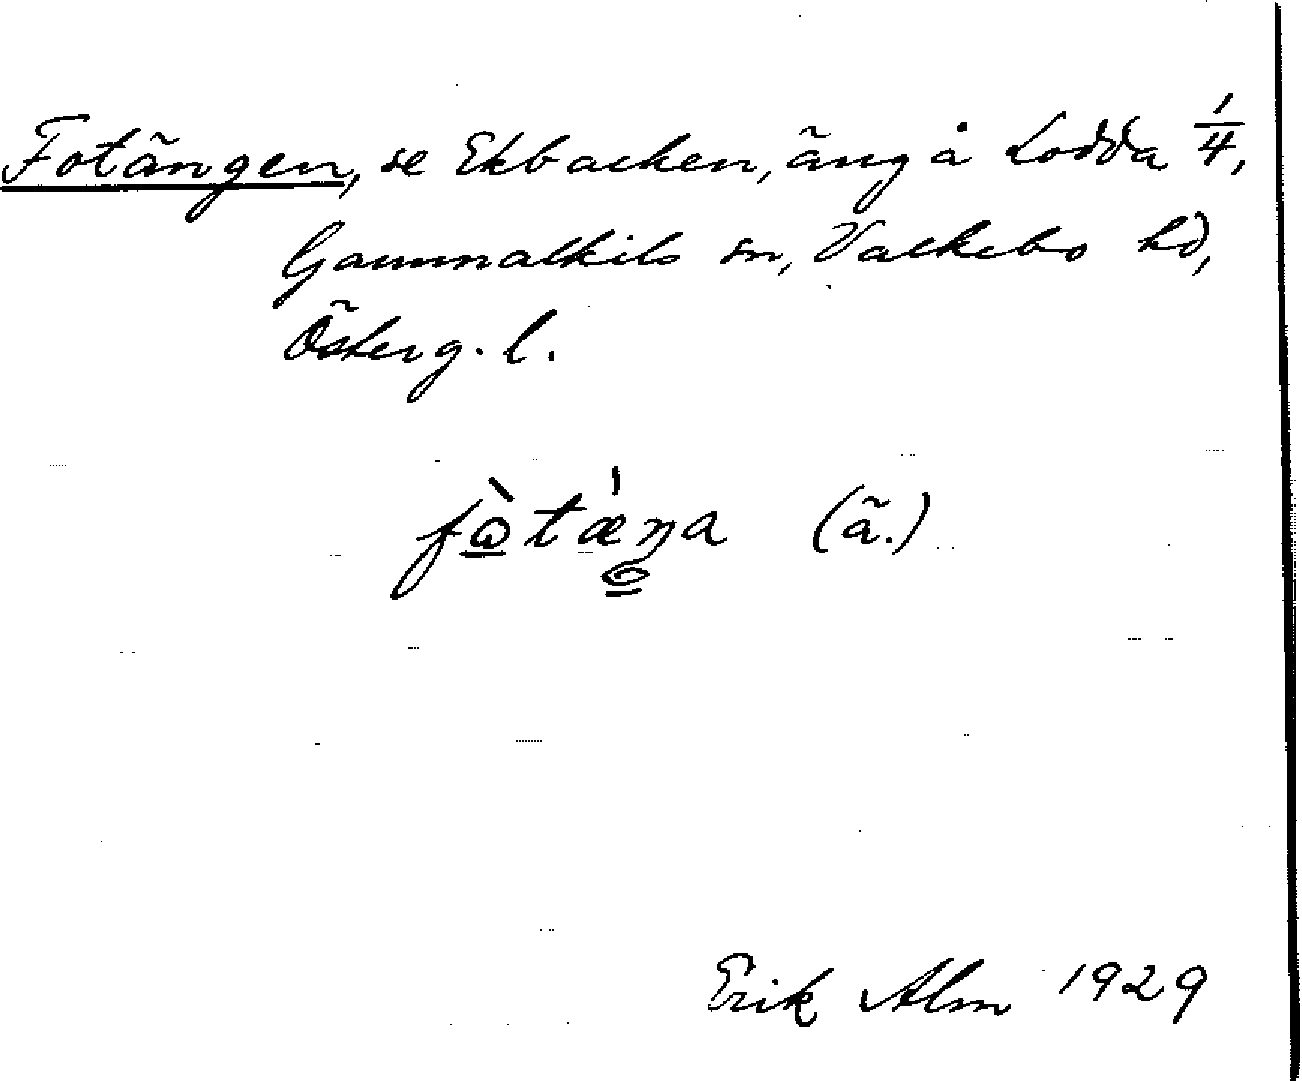 Fotängen, se Ekbacken, äng å Lodda 1/4,
Gammalkils sn, Valkebo hd,
Österg. l.
(ä.)
Erik Alm 1929